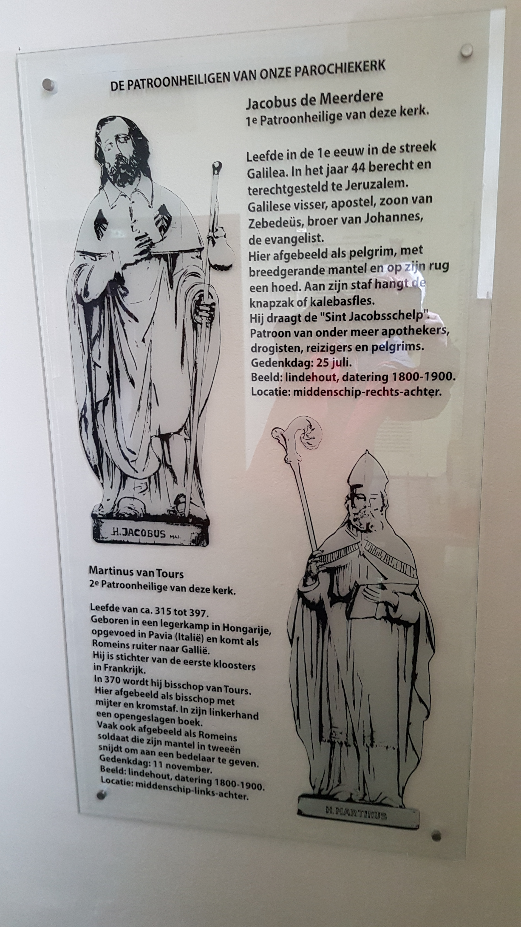 DE PATROONHEILIGEN VAN ONZE PAROCHIEKERK
Jacobus de Meerdere
1e Patroonheilige van deze kerk.
Leefde in de 1e eeuw in de streek
Galilea. In het jaar 44 berecht en
terechtgesteld te Jeruzalem.
Galilese visser, apostel, zoon van
Zebedeüs, broer van Johannes,
de evangelist.
Hier afgebeeld als pelgrim, met
breedgerande mantel en op zijn rug
een hoed. Aan zijn staf hangt de
knapzak of kalebasfles.
Hij draagt de "Sint Jacobsschelp"
Patroon van onder meer apothekers,
drogisten, reizigers en pelgrims.
Gedenkdag: 25 juli.
Beeld: lindehout, datering 1800-1900.
Locatie: middenschip-rechts-achter.
H. JACOBUS MAJ.
Martinus van Tours
2e Patroonheilige van deze kerk.
Leefde van ca. 315 tot 397.
Geboren in een legerkamp in Hongarije,
opgevoed in Pavia (Italië) en komt als
Romeins ruiter naar Gallië.
Hij is stichter van de eerste kloosters
in Frankrijk.
In 370 wordt hij bisschop van Tours.
Hier afgebeeld als bisschop met
mijter en kromstaf. In zijn linkerhand
een opengeslagen boek.
Vaak ook afgebeeld als Romeins
soldaat die zijn mantel in tweeën
snijdt om aan een bedelaar te geven.
Gedenkdag: 11 november.
Beeld: lindehout, datering 1800-1900.
Locatie: middenschip-links-achter.
H. MARTINUS